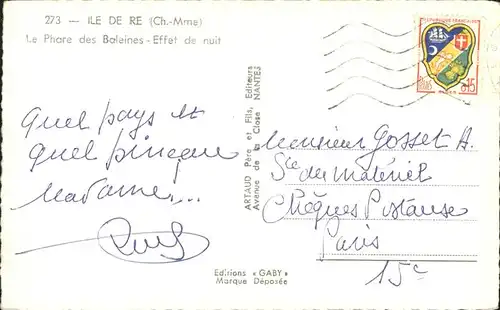 273 — ILE DE RE (Ch.-Mme)
Le Phare des Baleines - Effet de nuit
REPUBLIQUE FRANÇAISE
0,15
ARTAUD Père et Fils, Editeurs
Avenue de la Close NANTES
Quel pays et
quel pineau
Madame...
Monsieur Gosset A.
Sce du Matériel
Chèques Postaux
Paris
15e
Editions « GABY »
Marque Déposée